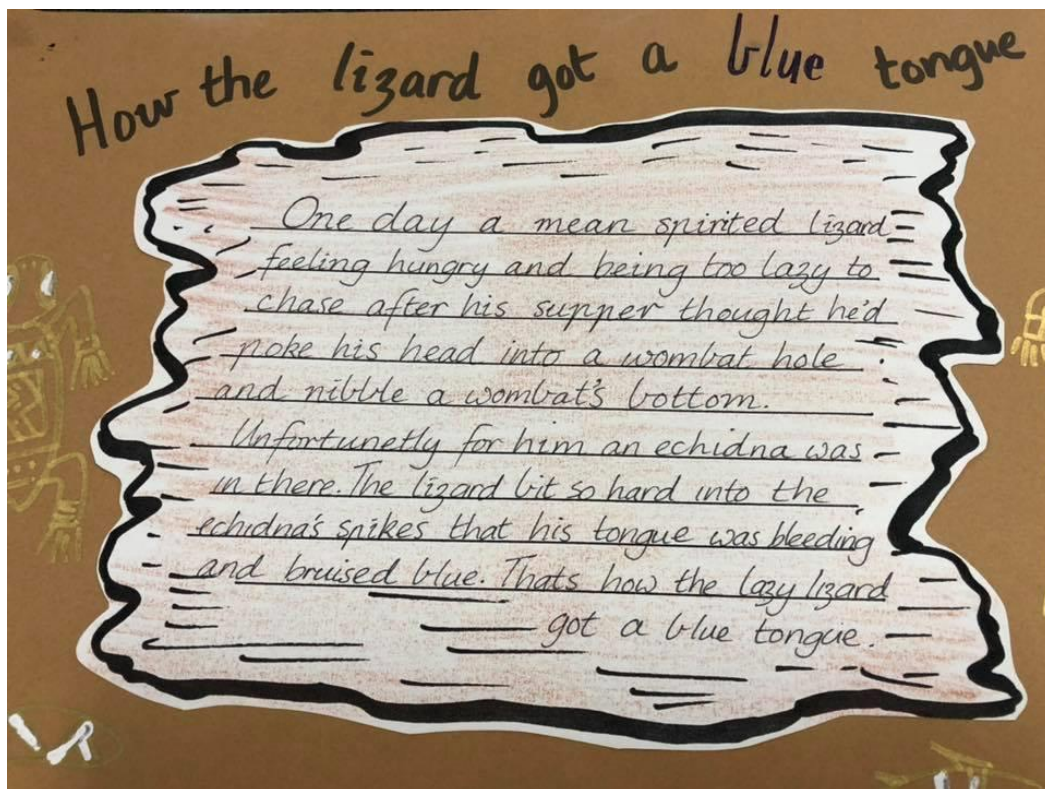 How the lizard got a blue tongue
One day a mean spirited lizard
feeling hungry and being too lazy to
chase after his supper thought he'd
poke his head into a wombat hole
and nibble a wombat's bottom.
Unfortunetly for him an echidna was
in there. The lizard bit so hard into the
echidna's spikes that his tongue was bleeding
and bruised blue. Thats how the lazy lizard
got a blue tongue.